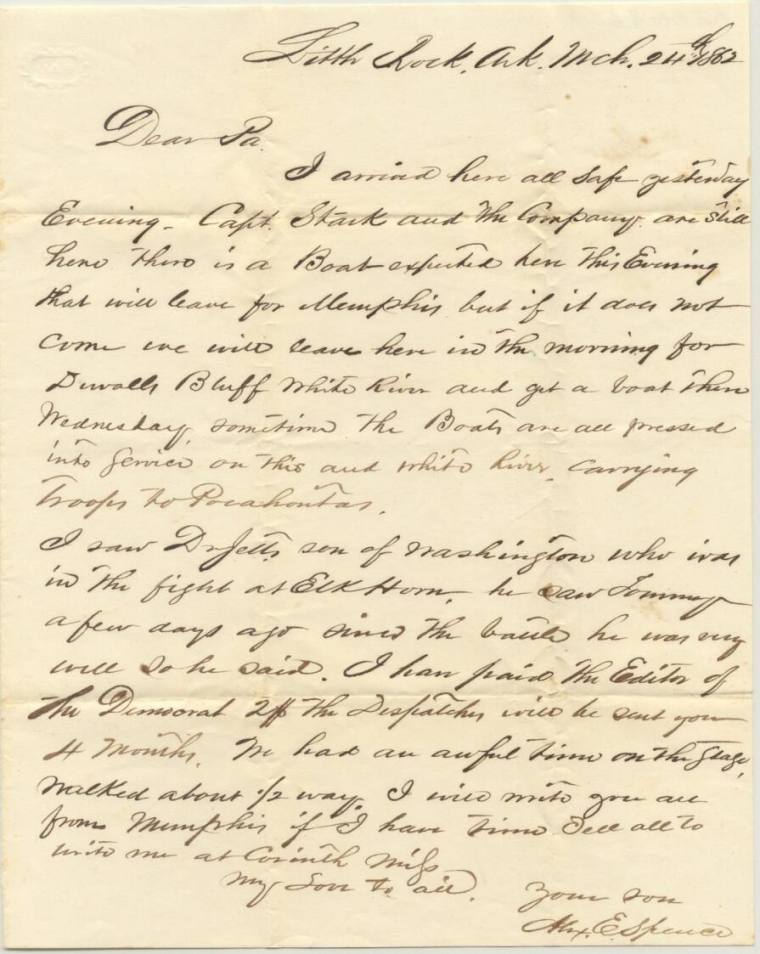 Little Rock, Ark. Mch. 24th 1862
Dear Pa.
I arrived here all safe yesterday
Evening - Capt. Stark and the Company are still
here there is a Boat expected here this Evening
that will leave for Memphis but if it does not
come we will leave here in the morning for
Duvalls Bluff White River and get a boat there
Wednesday sometime the Boats are all pressed
into service on this and white River, carrying
Troops to Pocahontas.
I saw Dr Jetts son of Washington who was
in the fight at Elk Horn, he saw Tommy
a few days ago since the battle he was very
well so he said. I have paid the Editor of
the Democrat 2$ the Despatches will be sent you
4 Months. We had an awful time on the Stage,
walked about 1/2 way I will write you all
from Memphis if I have time Tell all to
write me at Corinth Miss
My Love to all.
Your son
Alex. E. Spence